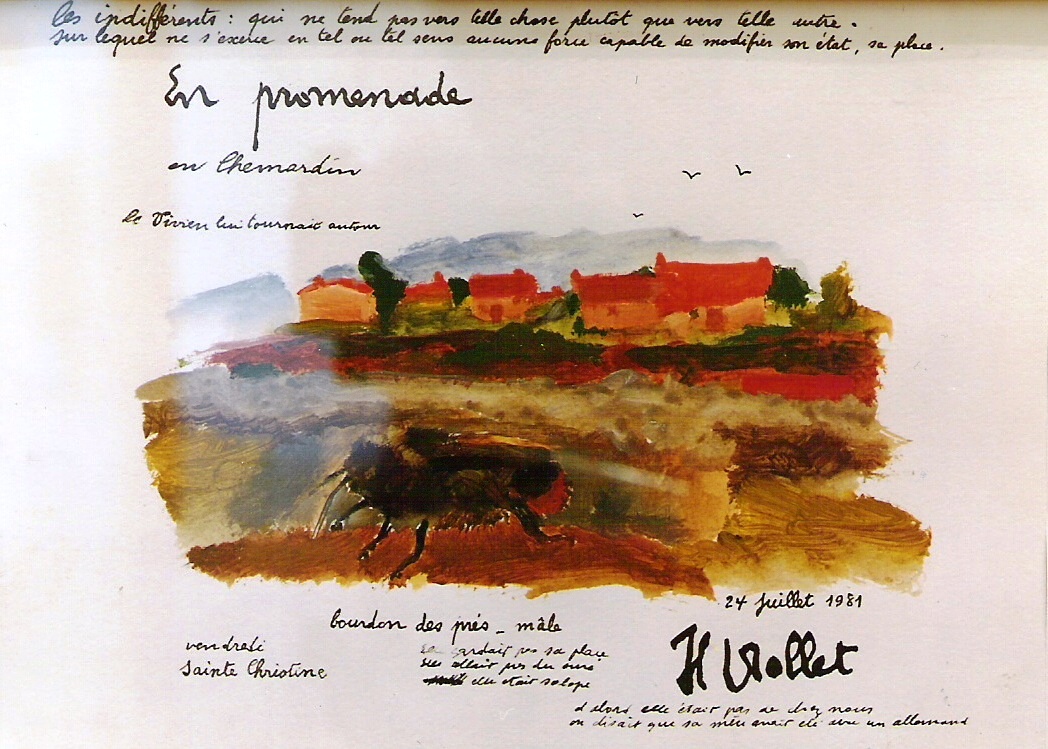 les indifférents : qui ne tend pas vers telle chose plutôt que vers telle autre.
sur lequel ne s'exerce en tel ou tel sens aucune force capable de modifier son état, sa place.
En promenade
en Chemardin
le Vivien lui tournait autour
24 Juillet 1981
bourdon des prés - mâle
vendredi
Sainte Christine
gardait pas sa place
allait pas du
elle était salope
H Viollet
d'alors elle était pas de chez nous
on disait que sa mère avait été avec un allemand